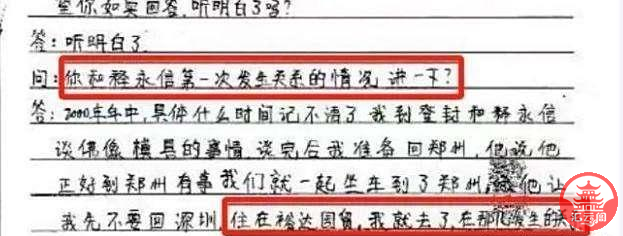 望你如实回答,听明白了吗?
答:听明白了.
问:你和释永信第一次发生关系的情况讲一下?
答:2000年年中,具体什么时间记不清了我到登封和释永信
谈佛像模具的事情.谈完后我准备回郑州,他说他
正好到郑州有事我们就一起坐车到了郑州,他让
我先不要回深圳,住在裕达国贸,我就去了,在那儿发生的关
汇云阁